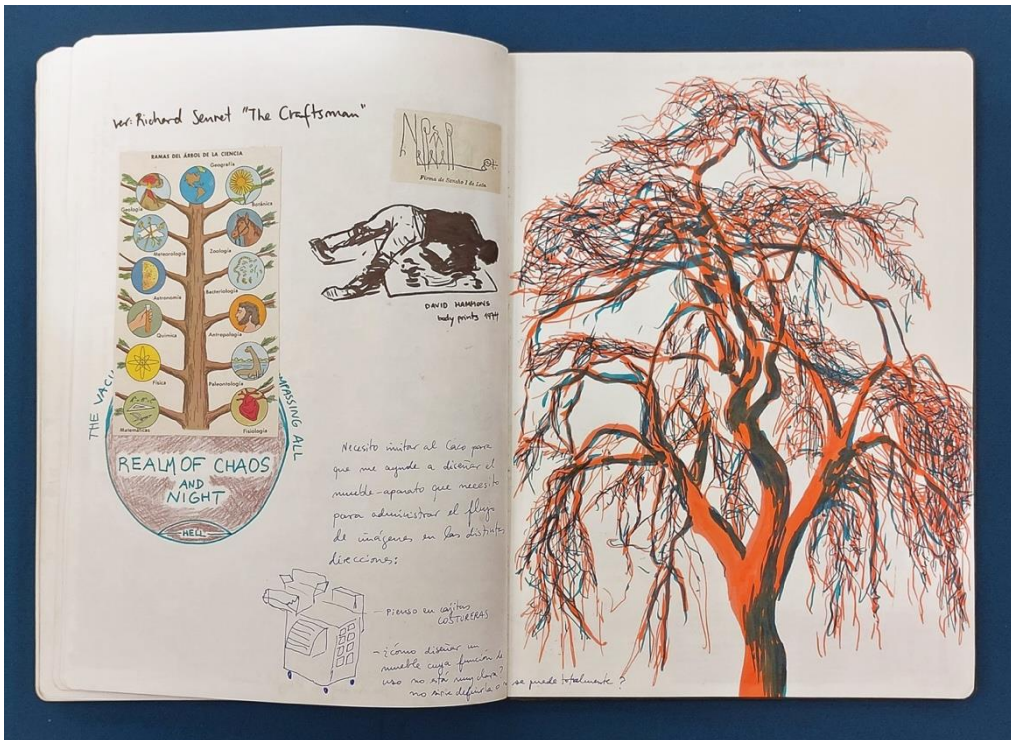 ver: Richard Sennet "The Craftsman"
RAMAS DEL ÁRBOL DE LA CIENCIA
Geografía
Geología
Botánica
Meteorología
Zoología
Astronomía
Bacteriología
Química
Antropología
Física
Paleontología
Matemáticas
Fisiología
THE VACU
MPASSING ALL
REALM OF CHAOS
AND
NIGHT
HELL
Firma de Sancho I de León
DAVID HAMMONS
body prints 1974
Necesito invitar al Caco para
que me ayude a diseñar el
mueble-aparato que necesito
para administrar el flujo
de imágenes en las distintas
direcciones:
- Pienso en cajitas
COSTURERAS
- ¿cómo diseñar un
mueble cuya función de
uso no está muy clara?
no sirve definirla o no se puede totalmente?